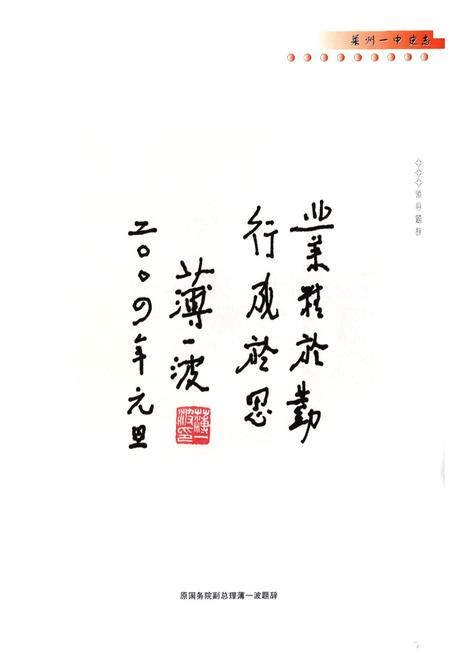 莱州一中史志
领导题辞
業精於勤
行成於思
薄一波
薄一波印
二〇〇四年元旦
原国务院副总理薄一波题辞